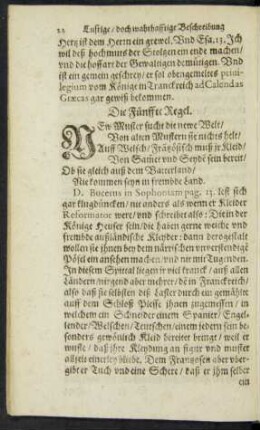 22 Lustige / doch wahrhafftige Beschreibung
Hertz ist dem Herrn ein grewel. Vnd Esa. 13. Jch
wil deß hochmuts der Stoltzen ein ende machen/
vnd die hoffart der Gewaltigen demütigen. Vnd
ist ein gemein geschrey / er sol obengemeltes privi-
legium vom Könige in Franckreich ad Calendas
Græcas gar gewiß bekommen.
Die Fünffte Regel.
New Muster sucht die newe Welt/
Von alten Mustern sie nichts helt/
Auff Welsch / Frantzösisch muß je Kleid/
Von Sammet vnd Seyde sein bereit/
Ob sie gleich auß dem Vatterland/
Nie kommen seyn in frembde Land.
D. Bucerus in Sophoniam pag. 23. lest sich
gar klug düncken / nit anders als wenn er Kleider
Reformator were / vnd schreibet also: Die in der
Könige Heuser sein / die haben gerne weiche vnd
frembde außländische Kleyder: dann dergestalt
wollen sie haben bey dem närrischen
Pöfel ein ansehen machen / vnd nit mit Tugenden.
In diesem Spittal liegen jr viel kranck / auß allen
Ländern / nirgend aber mehr / dē in Franckreich /
also daß sie selbsten deß Laster durch ein gemählde
auff dem Schloß Plesse jhnen zugemessen / in
welchem ein Schneider einem Spanier / Engel-
lender / Welschen / Teutschen / einem jedern sein be-
sonders gewönlich Kleid bereitet bringt / weil er
wuste / daß jhre Kleydung an figur vnd muster
allzeit einerley bleibt. Dem Frantzosen aber vber-
gibt er Tuch vnd eine Schere / daß er jhm selber
ein